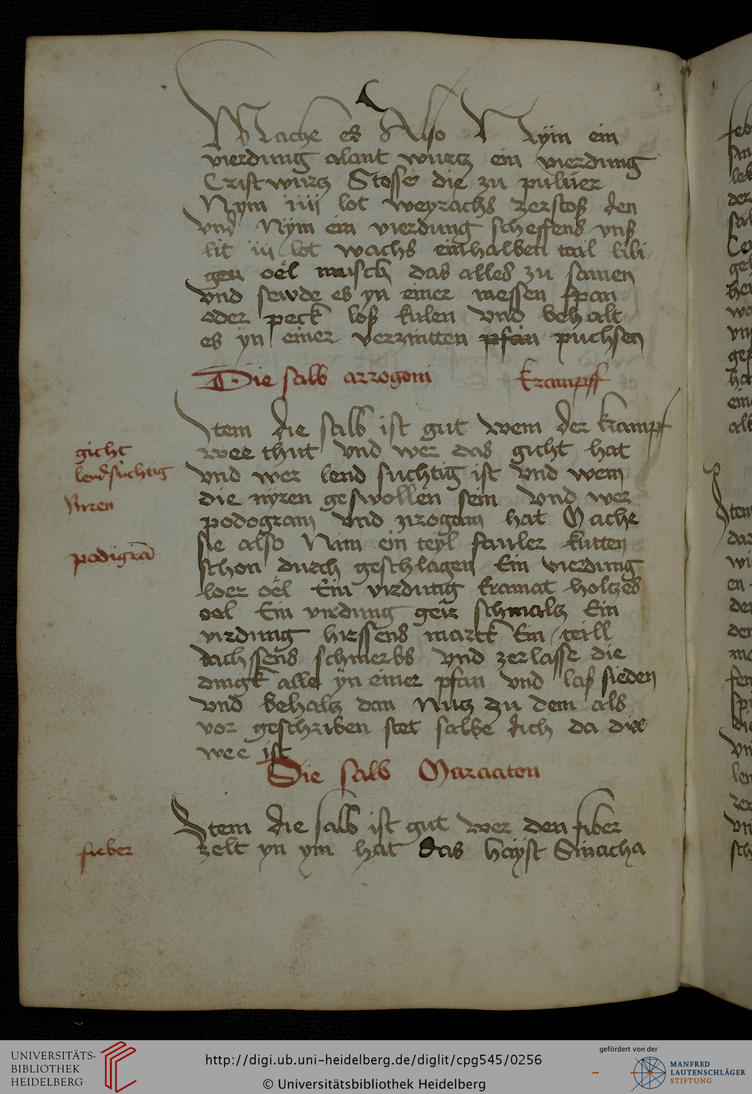 Mache es Also Nÿm ein
vierdung alant wurcz ein vierdung
Cristwurcz Stosse die zu puluer
Nym iiij lot weyrachs zerstoß den
vnd Nÿm ein vierdung scheffens vnß
lit iij lot wachs einhalben tail lili
gen oël misch das alles zu samen
vnd sewde es yn einer messen pfan
oder peck loß kulen vnd behalt
es yn einer verzintten pfan puchsen
Die salb arrogoni krampff
Item die salb ist gut wem der krampf
wee thut vnd wer das gicht hat
vnd wer lend suchtig ist vnd wem
die nyren geswollen sein vnd wer
podogram vnd zirogram hat Mache
sie also Nim ein teyl fauler kutten
schon durch geschlagen Ein vierdung
loer oël Ein virdung kramat holtzes
oel Ein virdung geiß schmaltz Ein
virdung hirssens marck Ein teill
dachssens schmerbs vnd zerlasse die
dingk alle yn einer pfan vnd laß sieden
vnd behaltz dan Nutz zu dem als
vor geschriben stet salbe dich da dir
wee ist
gicht
lendsuchtig
Niren
podigra
Die salb Maraaton
Item die salb ist gut wer den fiber
zelt yn ym hat das hayst Smacha
fieber
UNIVERSITÄTS-
BIBLIOTHEK
HEIDELBERG
http://digi.ub.uni-heidelberg.de/diglit/cpg545/0256
© Universitätsbibliothek Heidelberg
gefördert von der
MANFRED
LAUTENSCHLÄGER
STIFTUNG